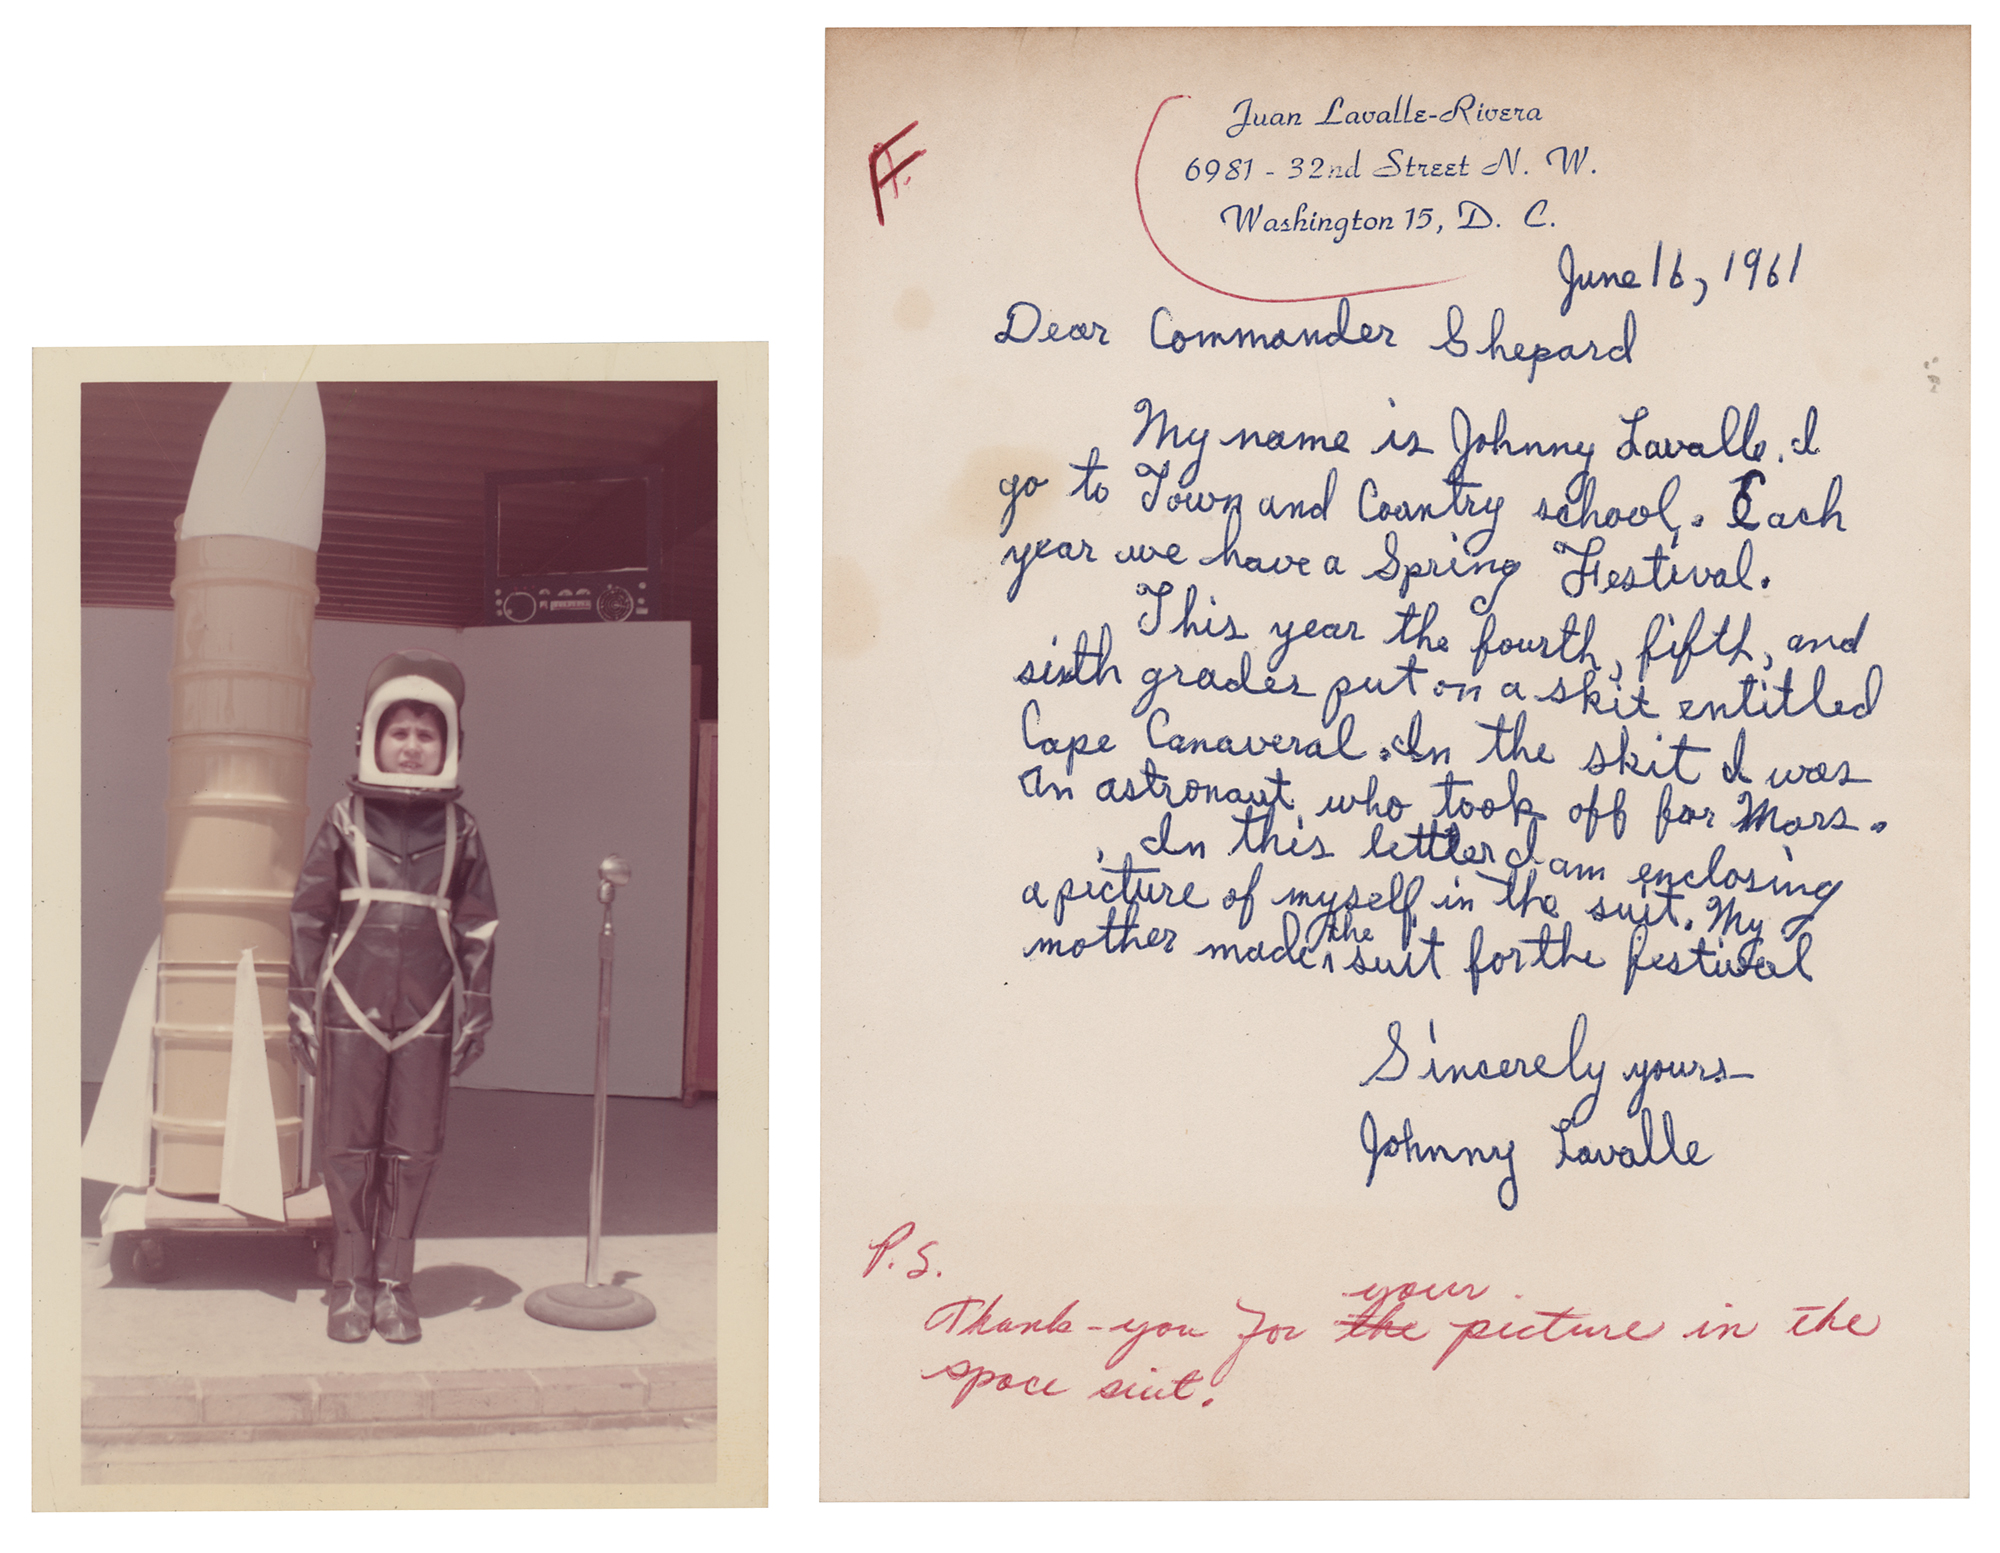 F.
Juan Lavalle-Rivera
6981 - 32nd Street N. W.
Washington 15, D. C.
June 16, 1961
Dear Commander Shepard
My name is Johnny Lavalle. I
go to Town and Country school. Each
year we have a Spring Festival.
This year the fourth, fifth, and
sixth grades put on a skit entitled
Cape Canaveral. In the skit I was
an astronaut who took off for Mars.
In this letter I am enclosing
a picture of myself in the suit. My
mother made the suit for the festival
Sincerely yours
Johnny Lavalle
P.S.
Thank-you for the your picture in the
space suit.